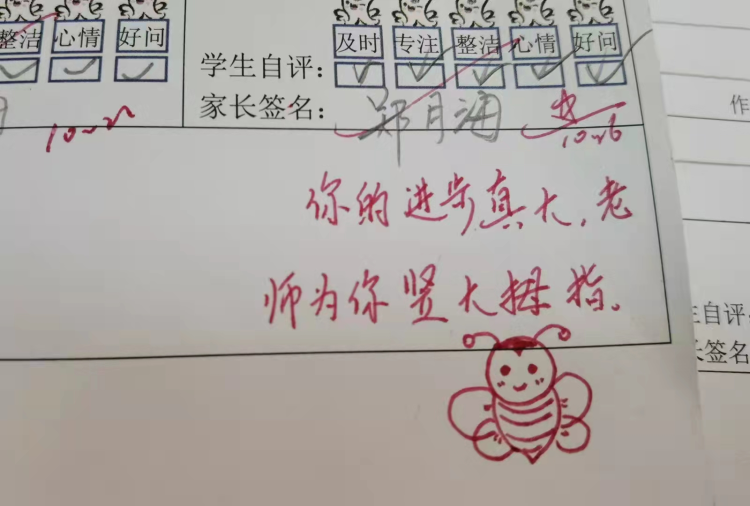 整洁 心情 好问
及时 专注 整洁 心情 好问
学生自评：
家长签名：郑月海
10-6
作
你的进步真大，老
师为你竖大拇指。
生自评
长签名